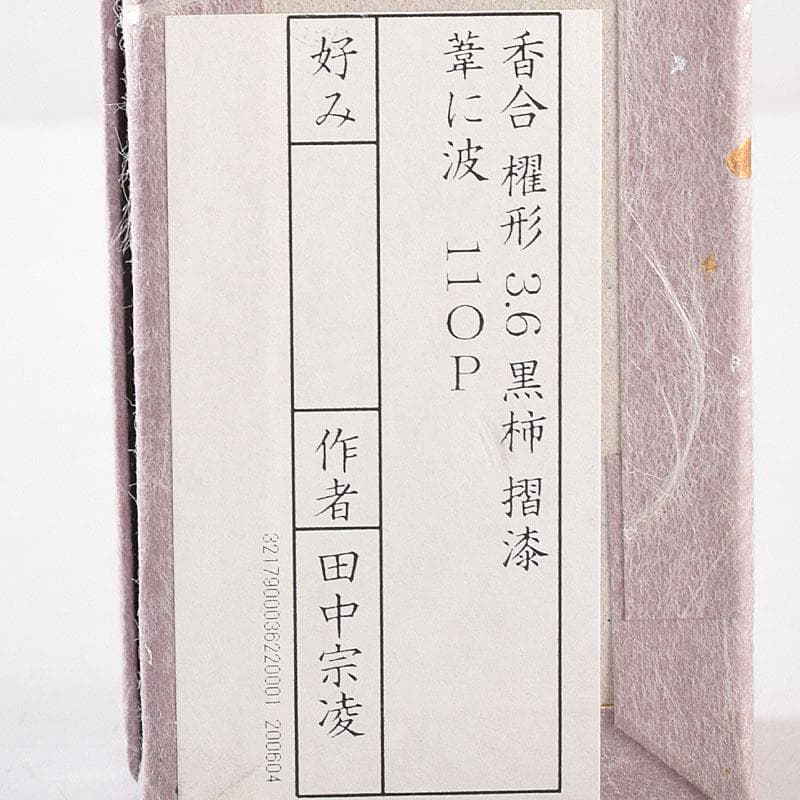 香合 櫂形 3.6 黒柿 摺漆
葦に波 110P
好み
作者
田中宗凌
3217900036220001 200604